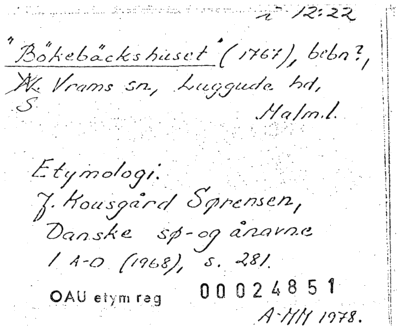 i 12:22
"Bökebäckshuset" (1767), bebn?,
N. Vrams sn, Luggude hd,
S
Malm.l.
Etymologi.
J. Kousgård Sørensen,
Danske sø- og ånavne
1 A-D (1968), s. 281.
OAU etym reg 00024851
A-MM 1978.